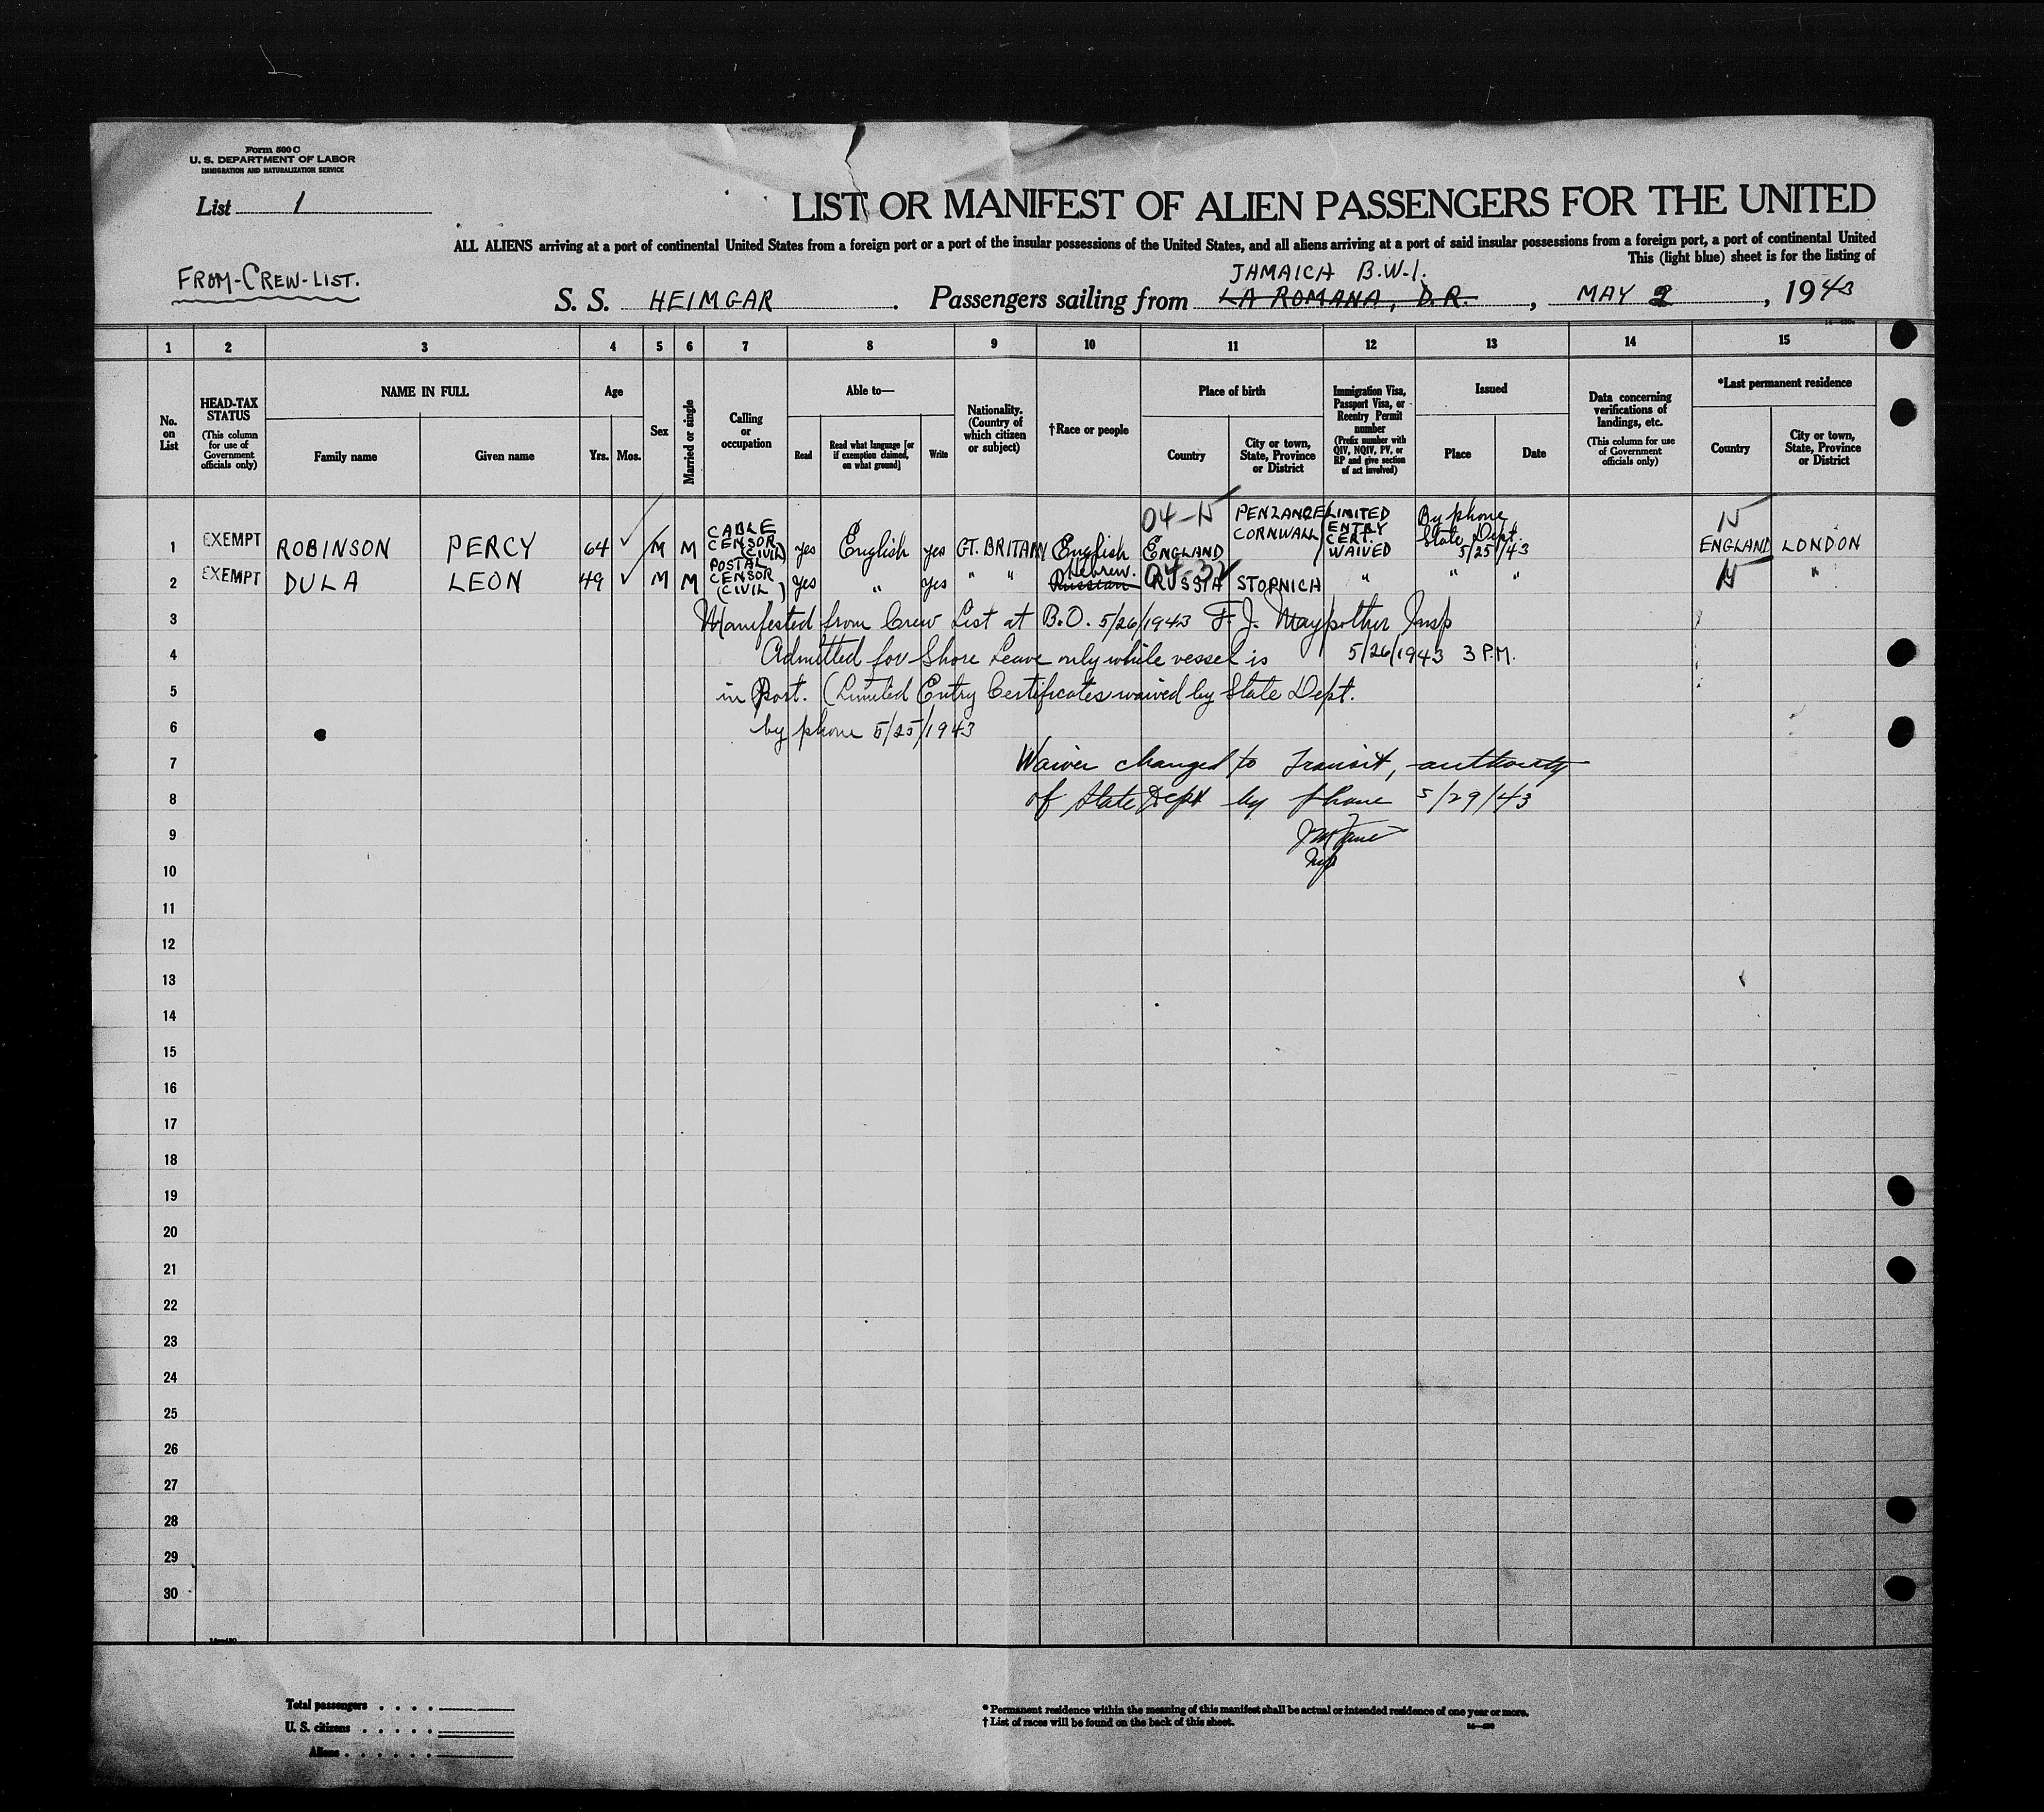 Form 500 C
U. S. DEPARTMENT OF LABOR
IMMIGRATION AND NATURALIZATION SERVICE
List 1
LIST OR MANIFEST OF ALIEN PASSENGERS FOR THE UNITED
ALL ALIENS arriving at a port of continental United States from a foreign port or a port of the insular possessions of the United States, and all aliens arriving at a port of said insular possessions from a foreign port, a port of continental United
This (light blue) sheet is for the listing of
FROM-CREW-LIST.
JAMAICA B.W.I.
S. S. HEIMGAR . Passengers sailing from LA ROMANA, D.R. , MAY 2 , 1943
1 2 3 4 5 6 7 8 9 10 11 12 13 14 15
No. on List
HEAD-TAX STATUS
(This column for use of Government officials only)
NAME IN FULL
Family name Given name
Age
Yrs. Mos.
Sex
Married or single
Calling or occupation
Able to—
Read
Read what language [or if exemption claimed, on what ground]
Write
Nationality. (Country of which citizen or subject)
†Race or people
Place of birth
Country
City or town, State, Province or District
Immigration Visa, Passport Visa, or Reentry Permit number
(Prefix number with QIV, NQIV, PV, or RP and give section of act involved)
Issued
Place Date
Data concerning verifications of landings, etc.
(This column for use of Government officials only)
*Last permanent residence
Country
City or town, State, Province or District
1 EXEMPT ROBINSON PERCY 64 M M CABLE CENSOR (CIVIL) yes English yes GT. BRITAIN English 04-15 ENGLAND PENZANCE CORNWALL LIMITED ENTRY CERT. WAIVED By phone State Dept. 5/25/43 15 ENGLAND LONDON
2 EXEMPT DULA LEON 49 M M POSTAL CENSOR (CIVIL) yes " yes " " Hebrew. Russian 04-32 RUSSIA STOPNICH " " " "
3 Manifested from Crew List at B.O. 5/26/1943 F. J. Maypother Insp
4 Admitted for Shore Leave only while vessel is 5/26/1943 3 P.M.
5 in Port. (Limited Entry Certificates waived by State Dept.
6 by phone 5/25/1943
7 Waiver changed to Transit, authority
8 of State Dept by phone 5/29/43
9
10 Insp
11
12
13
14
15
16
17
18
19
20
21
22
23
24
25
26
27
28
29
30
Total passengers . . . .
U. S. citizens . . . . .
Aliens . . . . . .
* Permanent residence within the meaning of this manifest shall be actual or intended residence of one year or more.
† List of races will be found on the back of this sheet.